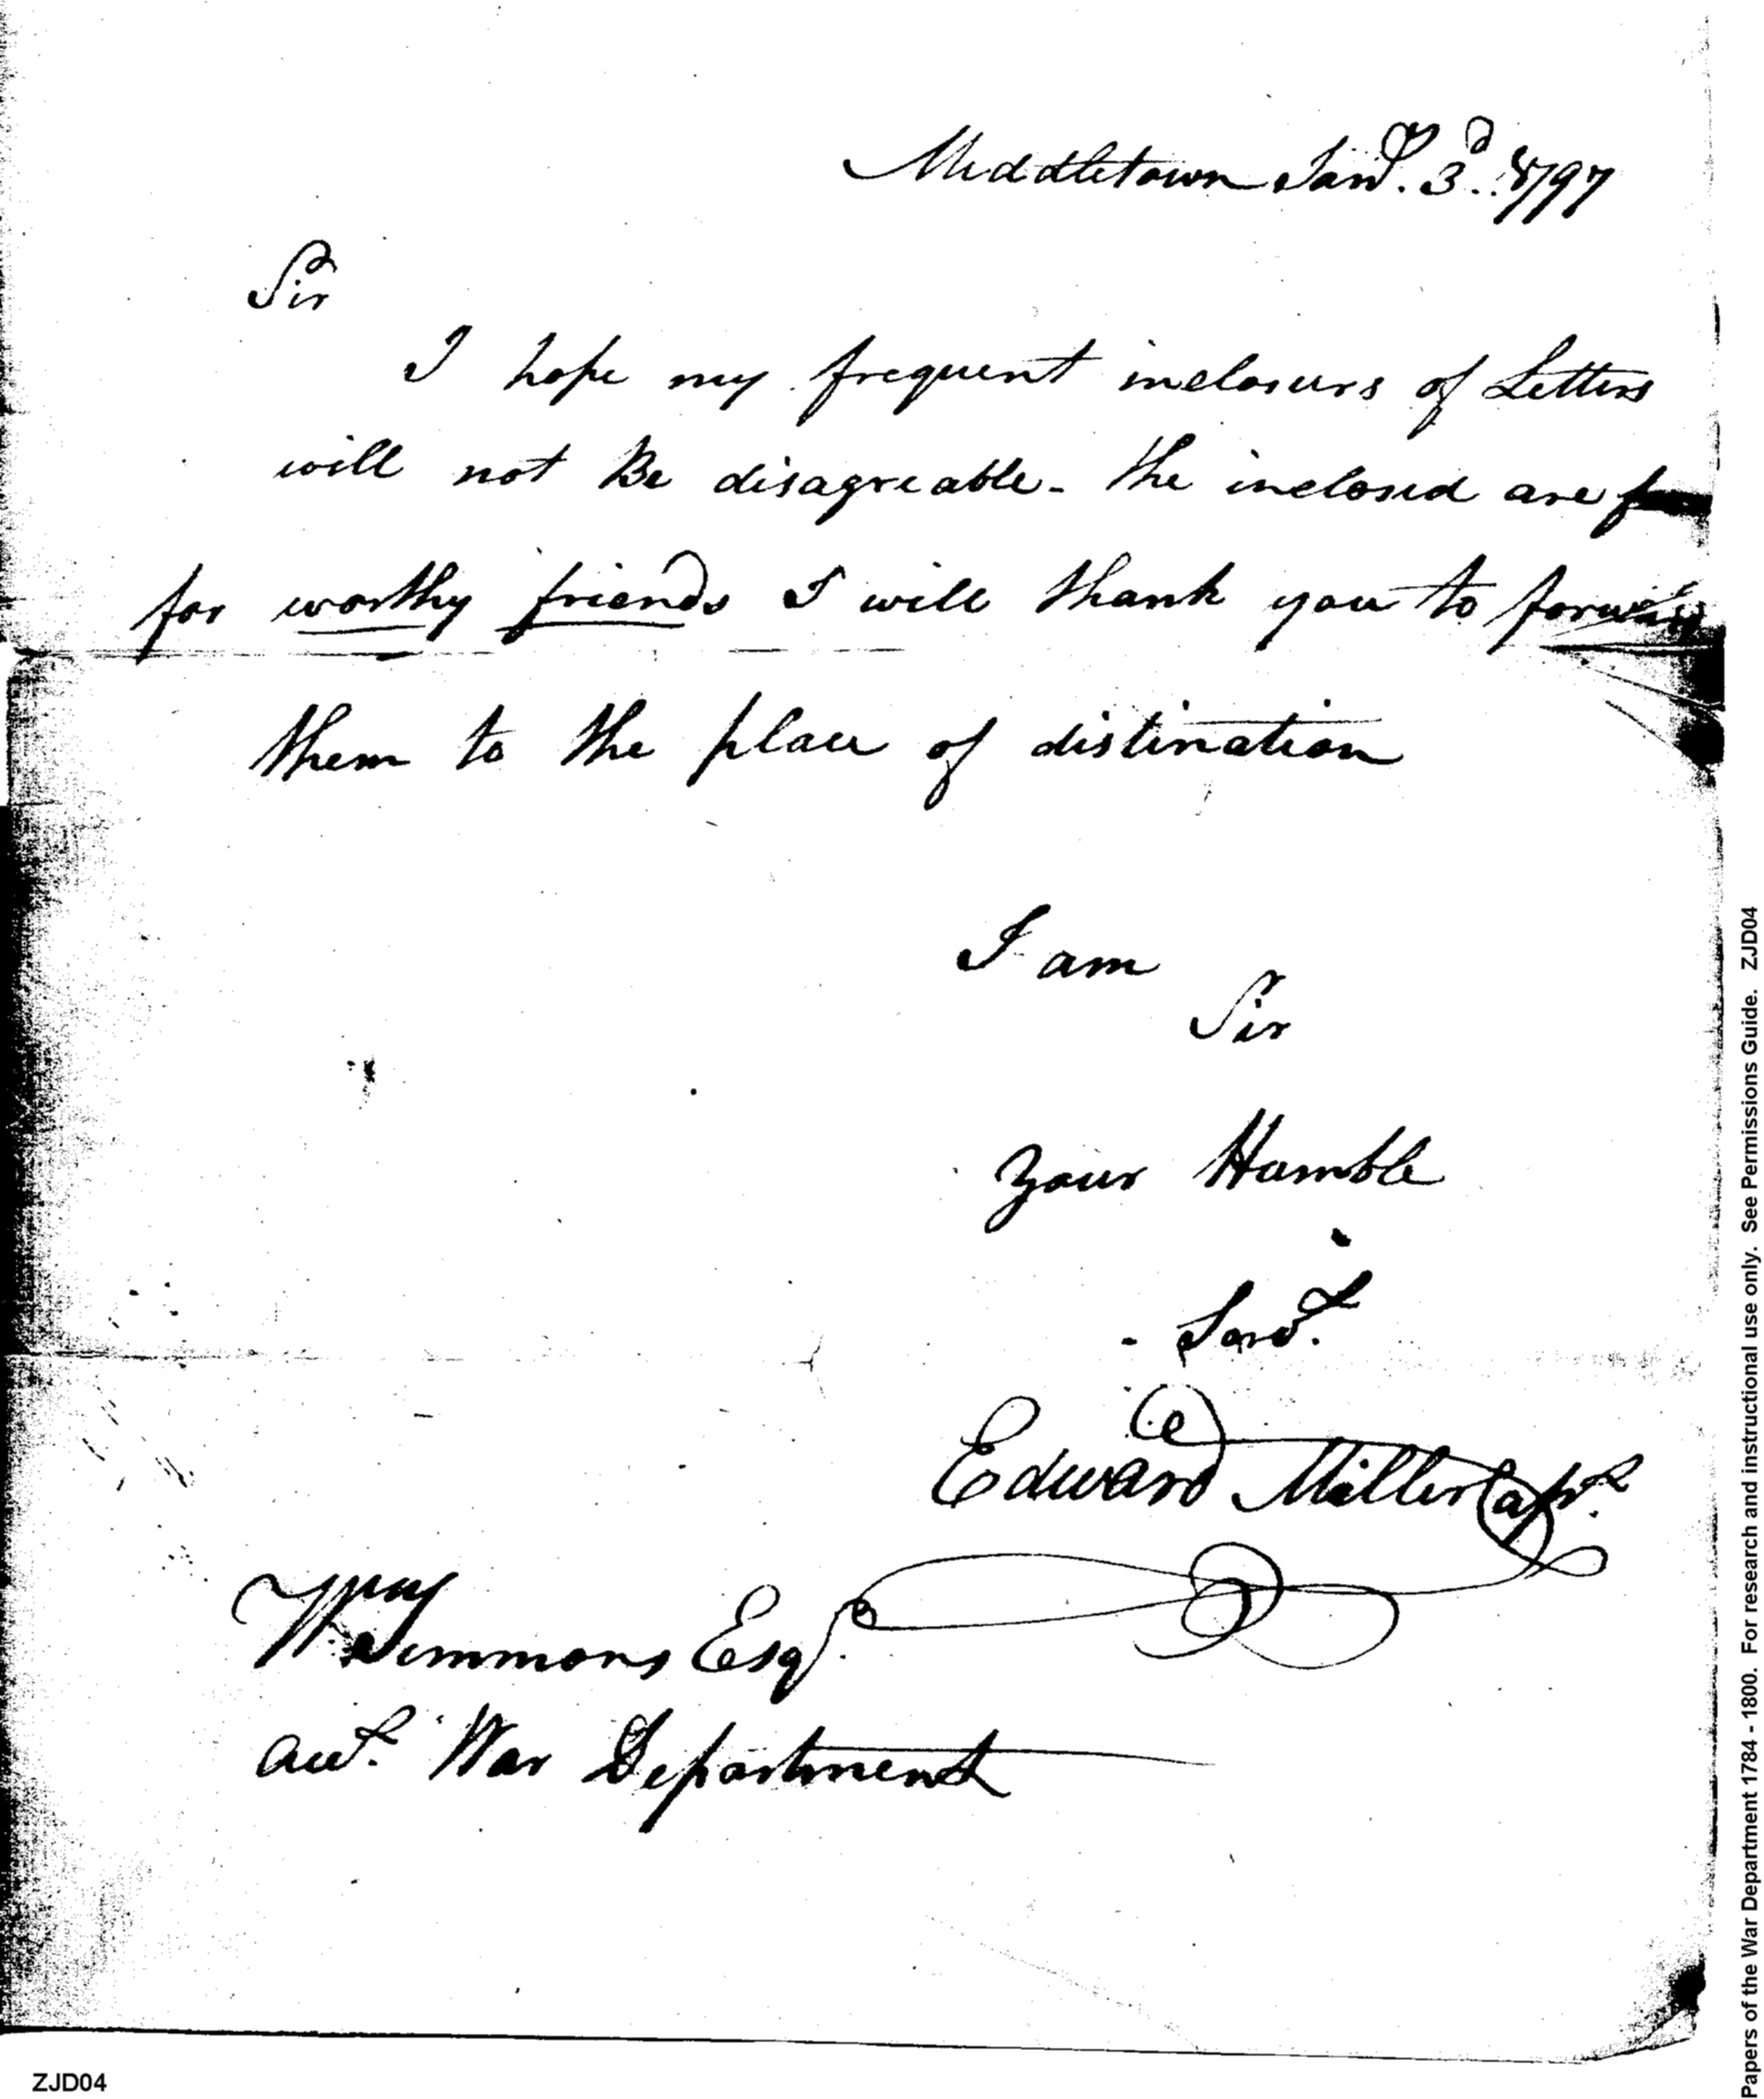 Middletown Jany. 3d. 1797
Sir
I hope my frequent inclosurs of Letters
will not Be disagreable - the inclosed are
for worthy friends I will thank you to forward
them to the place of distination
I am
Sir
your Humble
Servt.
Edward Miller Capt.
Wm Simmons Esqr.
Acct. War Department
Papers of the War Department 1784 - 1800. For research and instructional use only. See Permissions Guide. ZJD04
ZJD04